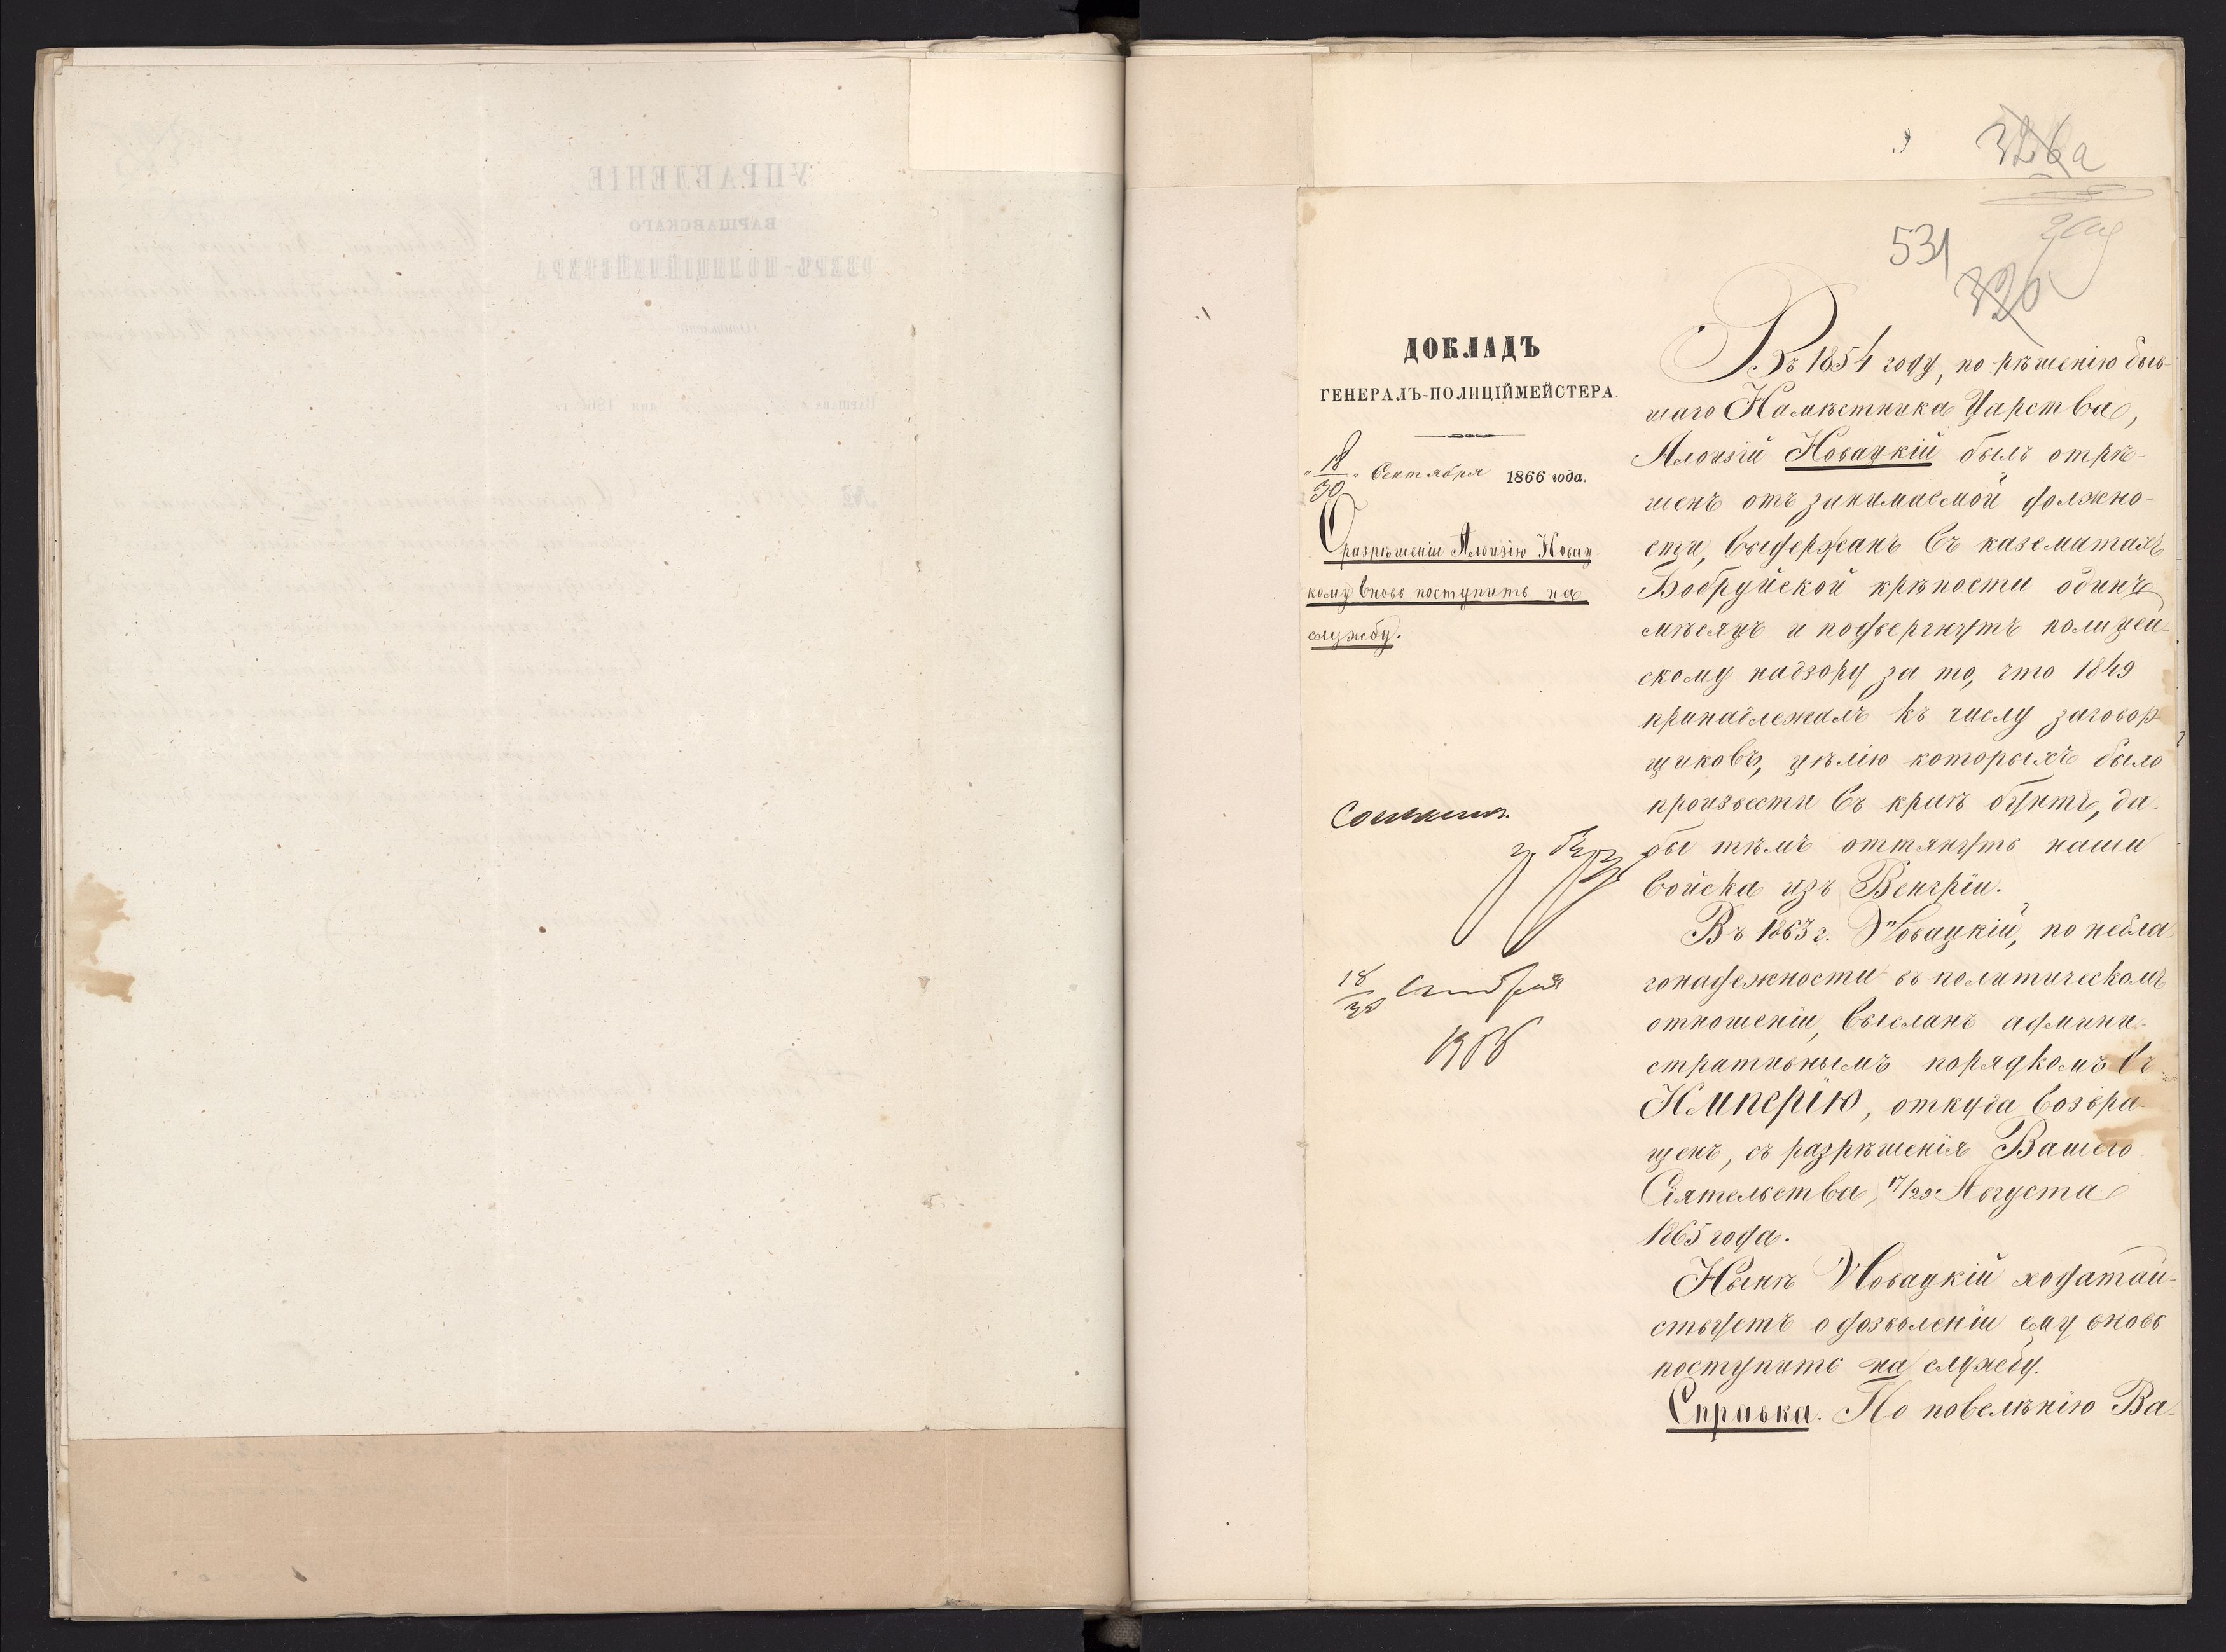 326а
531
320
ДОКЛАДЪ
ГЕНЕРАЛЪ-ПОЛИЦІЙМЕЙСТЕРА.
„18/30„ Сентября 1866 года.
О разрѣшеніи Алоизію Новац
кому вновь поступить на
службу.
18/30 Сентября
Въ 1854 году, по рѣшенію быв-
шаго Намѣстника Царства,
Алоизій Новацкій былъ отрѣ-
шенъ отъ занимаемой должно-
сти, выдержанъ въ казематахъ
Бобруйской крѣпости одинъ
мѣсяцъ и подвергнутъ полицей-
скому надзору за то, что 1849
принадлежалъ къ числу заговор-
щиковъ, цѣлію которыхъ было
произвести въ краѣ бунтъ, да-
бы тѣмъ оттянуть наши
войска изъ Венгріи.
Въ 1863 г. Новацкій, по небла-
гонадежности въ политическомъ
отношеніи, высланъ админи-
стративнымъ порядкомъ въ
Имперію, откуда возвра-
щенъ, съ разрѣшенія Вашего
Сіятельства, 17/29 Августа
1865 года.
Нынѣ Новацкій ходатай-
ствуетъ о дозволеніи ему вновь
поступить на службу.
Справка. По повелѣнію Ва-